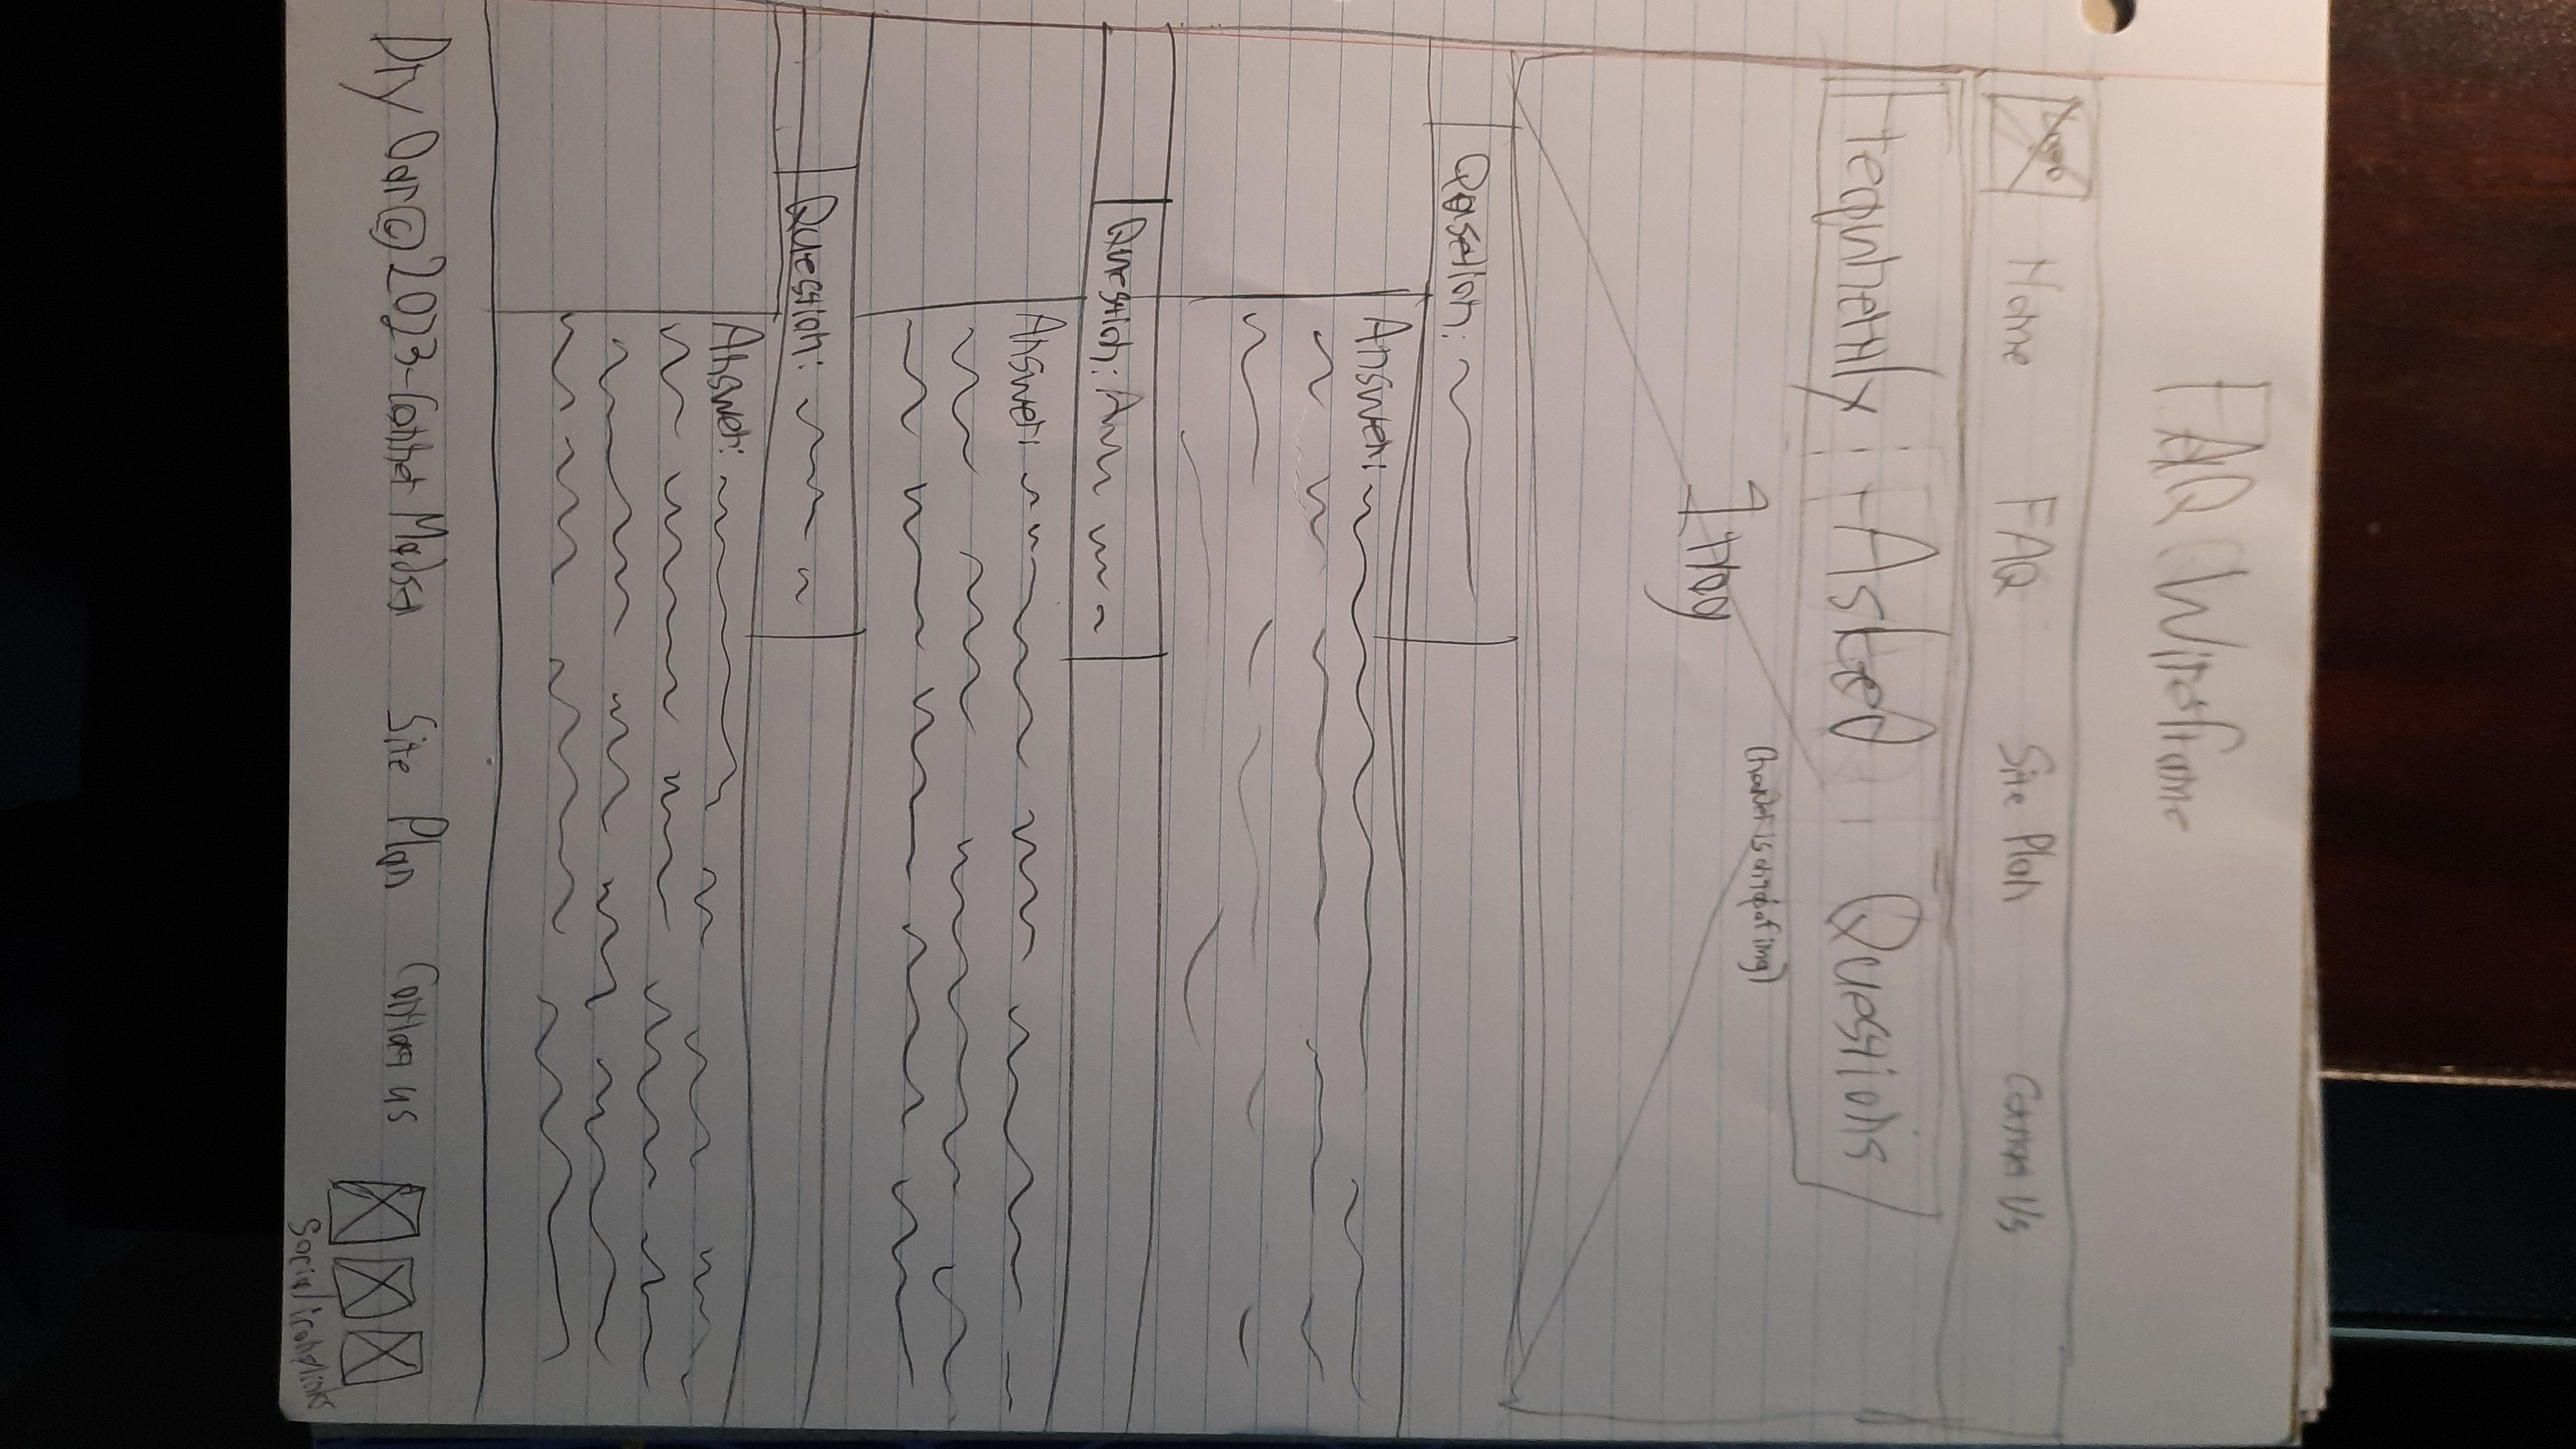 FAQ Wireframe
Logo Home FAQ Site Plan Contact Us
Frequhently Asked Questions
(header is on top of img)
Img
Qusetion:
Answer:
Question:
Answer:
Question:
Answer:
Dry Oar © 2023-Conner Madsen Site Plan Contact us
Social icons/links